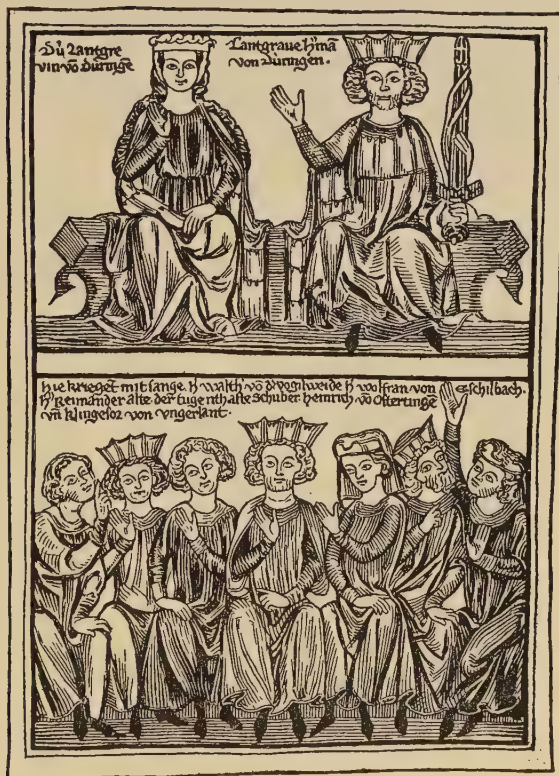 Dů Lantgre
vin vō Düringē
Lantgraue h'mā
von Düringen.
hie krieget mit sange. h' walth' vō d' vogilweide h' wolfran von Eschilbach.
h' Reimander alte. der tugenthafte Schriber. heinrich vō Oftertinge
vn̄ Klingesor von Ungerlant.